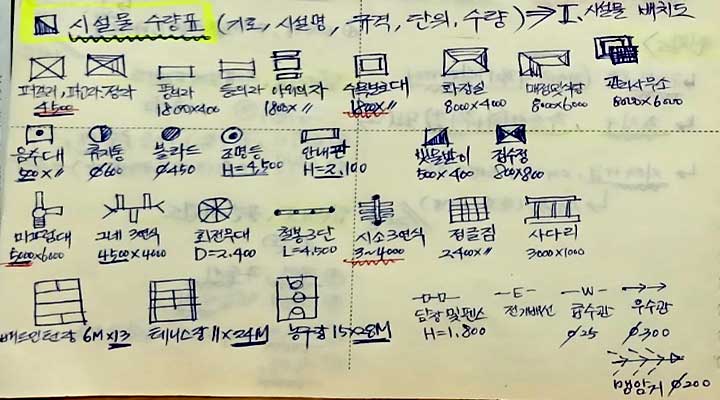 시설물 수량표 (기호, 시설명, 규격, 단위, 수량) ⇒ I. 시설물 배치도
퍼걸러, 파고라, 정자 평의자 등의자 야외의자 수목보호대 화장실 매점및식당 관리사무소
4500 1800×400 1800×〃 1800×〃 8000×4000 8000×6000 8000×6000
음수대 휴지통 볼라드 조명등 안내판 빗물받이 집수정
500×〃 Ø600 Ø450 H=4,500 H=2,100 500×400 800×800
미끄럼대 그네 3연식 회전무대 철봉 3단 시소 3연식 정글짐 사다리
5000×6000 4500×4000 D=2,400 L=4,500 3~4000 2400×〃 3000×1000
배드민턴장 6M×13 테니스장 11×24M 농구장 15×28M
담장 및 펜스 -E- 전기배선 -W- 급수관 우수관
H=1,800 Ø25 Ø300
맹암거 Ø200